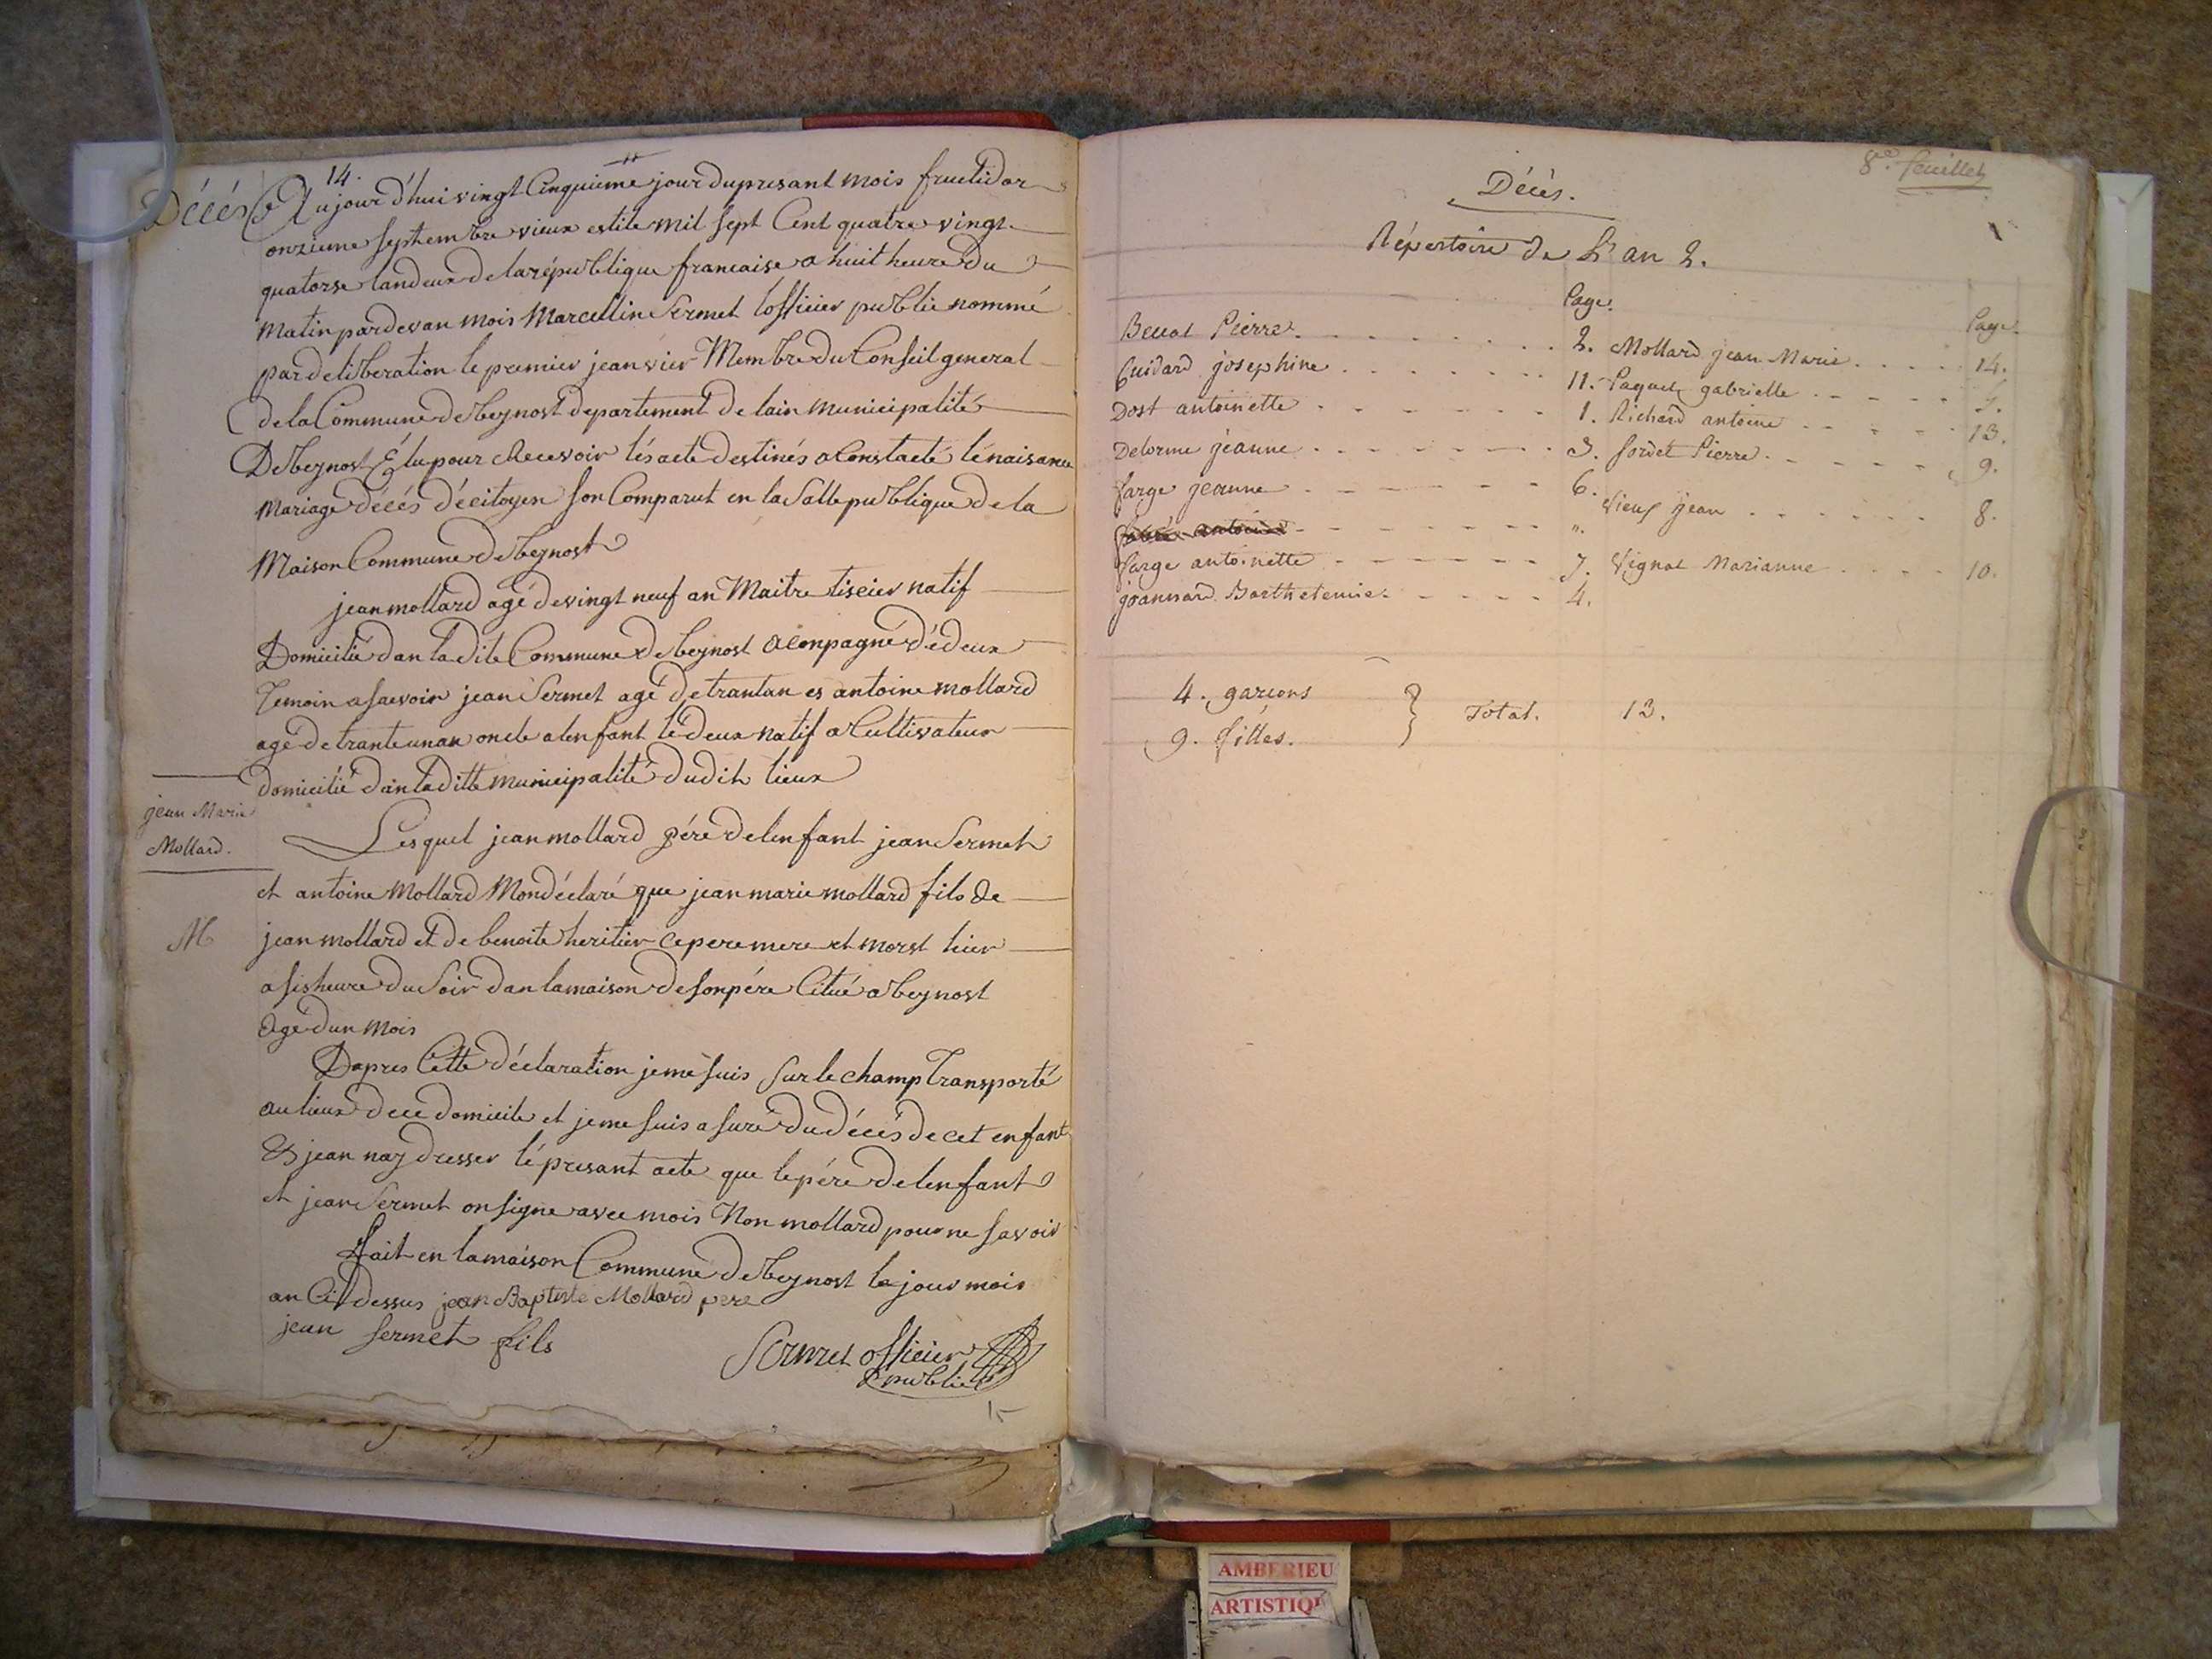 14.
Décés Aujour d'hui vingt Cinquiéme jour du presant mois fructidor
onzieme septembre vieux estile mil sept Cent quatre vingt
quatorse landeux de la république francaise a huit heure du
matin pardevan mois Marcellin Sermet lofficier public nommé
par deliberation le premier jeanvier Membre du Conseil general
de la Commune de beynost departement de lain municipalité
De beynost Élu pour Recevoir lés acte destinés a Constaté lé naisance
Mariage décés dé citoyen son Comparut en la Salle publique de la
Maison Commune de beynost
jean mollard agé de vingt neuf an Maitre tiseier natif
Domicilié dan la dite Commune de beynost aConpagné dé deux
temoin asaevoir jean Sermet agé de trantan es antoine mollard
agé de trante unan oncle a lenfant lé deux natif a Cultivateur
domicilié dan la ditte municipalité dudit lieux
jean Marie
Mollard.
Lesquel jean mollard pére de lenfant jean Sermet
et antoine Mollard Mon déclaré que jean marie mollard fils de
M jean mollard et de benoite heritier ce pere mere et morst hier
a sis heure du Soir dan la maison de son pére Citué a beynost
agé dun mois
Dapres Cette déclaration je mé suis sur le champ Transporté
au lieux de ce domicile et je me suis asuré du décés de cet enfant
Et jean nay dresser lé presant acte que le pére de lenfant
et jean Sermet on signe avec mois Non mollard pour ne savoir
Fait en la maison Commune de beynost le jour mois
an Ci dessus jean Baptiste Mollard pere
jean sermet fils
Sermet officier
public
15
8e. feuillet
Décès.
Répertoire de L'an 2.
Page. Page.
Pierre. 2. Mollard jean Marie 14.
Guidard josephine 11. Paquet gabrielle
Dost antoinette 1. Richard antoine 13.
Delorme jeanne 3. Sordet Pierre 9.
farge jeanne 6. Vieux jean 8.
antoine ".
farge antoinette 7. Vignat Marianne 10.
joannard Barthelemie 4.
4. garçons
9. filles. } Total. 13.
AMBERIEU
ARTISTIQU